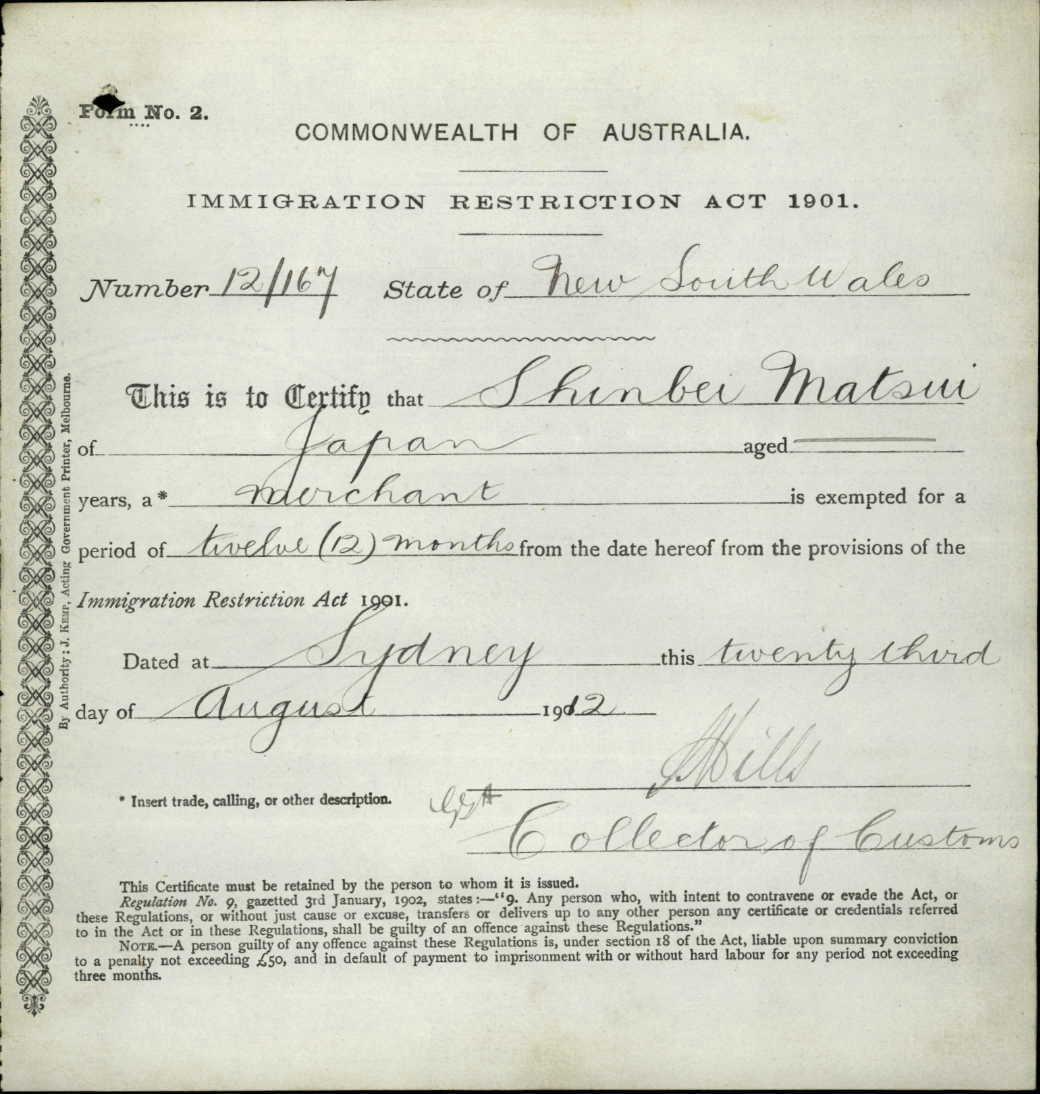 Form No. 2.
COMMONWEALTH OF AUSTRALIA.
IMMIGRATION RESTRICTION ACT 1901.
Number 12/167 State of New South Wales
This is to Certify that Shinbei Matsui
of Japan aged
years, a* merchant is exempted for a
period of twelve (12) months from the date hereof from the provisions of the
Immigration Restriction Act 1901.
Dated at Sydney this twenty third
day of August 1912
Mills
* Insert trade, calling, or other description.
Collector of Customs
This Certificate must be retained by the person to whom it is issued.
Regulation No. 9, gazetted 3rd January, 1902, states:—"9. Any person who, with intent to contravene or evade the Act, or
these Regulations, or without just cause or excuse, transfers or delivers up to any other person any certificate or credentials referred
to in the Act or in these Regulations, shall be guilty of an offence against these Regulations."
NOTE.—A person guilty of any offence against these Regulations is, under section 18 of the Act, liable upon summary conviction
to a penalty not exceeding £50, and in default of payment to imprisonment with or without hard labour for any period not exceeding
three months.
By Authority: J. KEMP, Acting Government Printer, Melbourne.